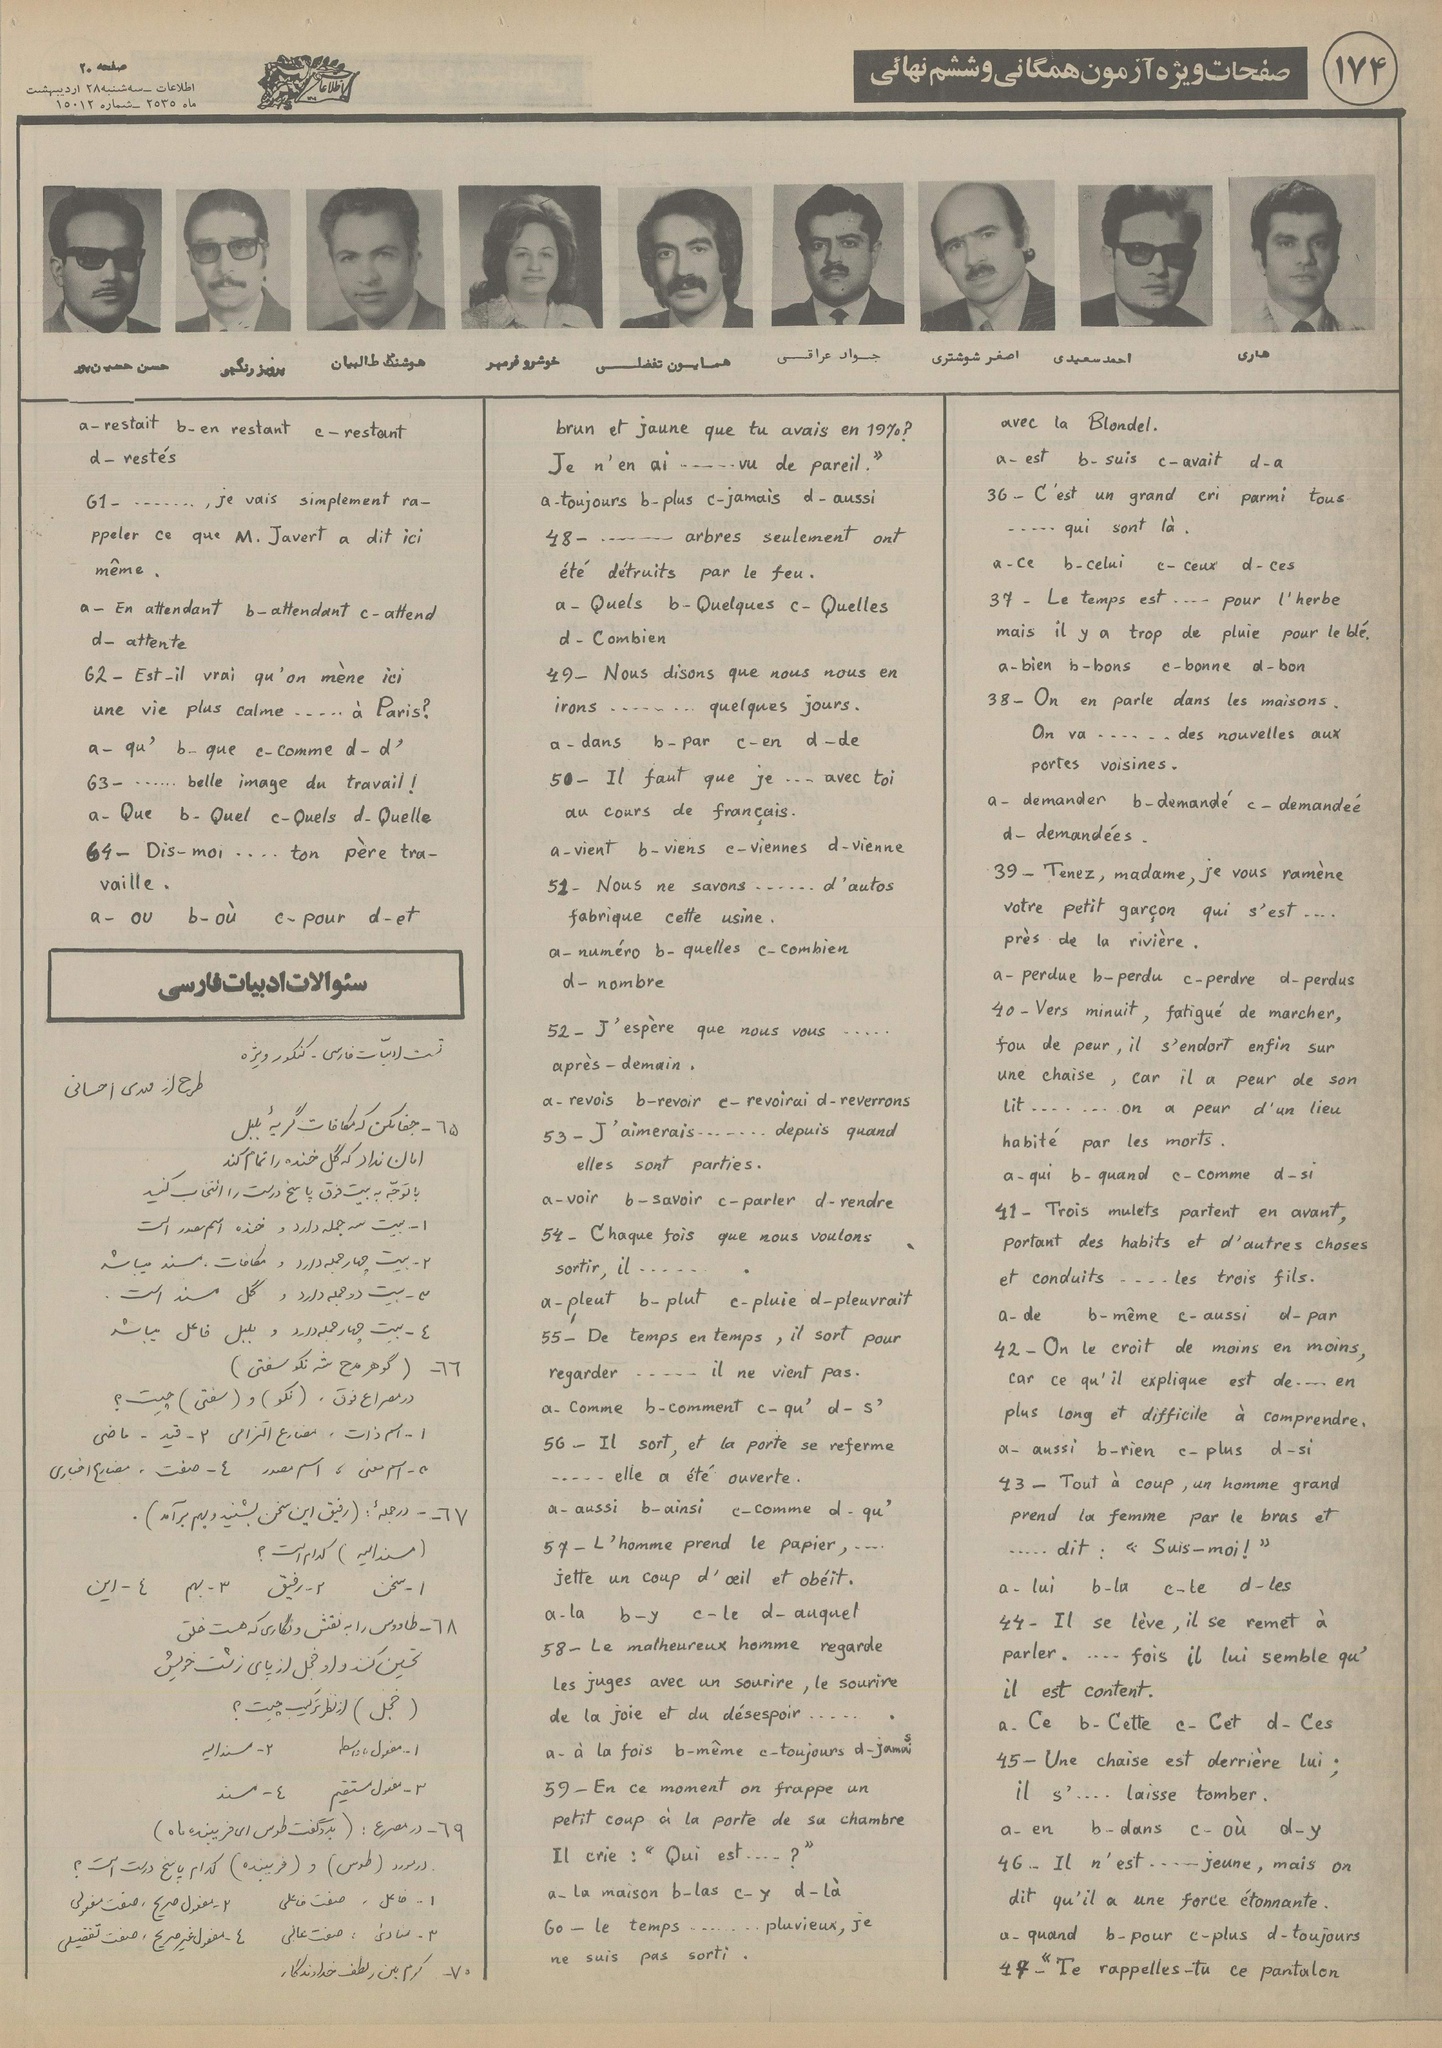 ۱۷۴
صفحات ویژه آزمون همگانی و ششم نهائی
اطلاعات
صفحه ۲۰
اطلاعات – سه‌شنبه ۲۸ اردیبهشت
ماه ۲۵۳۵ – شماره ۱۵۰۱۲
هاری
احمد سعیدی
اصغر شوشتری
جواد عراقی
همایون تفضلی
خوشرو فرمهر
هوشنگ طالبیان
پرویز رنگچی
حسن حسین‌پور
avec la Blondel.
a- est b- suis c- avait d- a
36 - C'est un grand cri parmi tous
----- qui sont là.
a- Ce b- celui c- ceux d- ces
37 - Le temps est ---- pour l'herbe
mais il y a trop de pluie pour le blé.
a- bien b- bons c- bonne d- bon
38 - On en parle dans les maisons.
On va ------ des nouvelles aux
portes voisines.
a- demander b- demandé c- demandeé
d- demandées.
39 - Tenez, madame, je vous ramène
votre petit garçon qui s'est ----
près de la rivière.
a- perdue b- perdu c- perdre d- perdus
40 - Vers minuit, fatigué de marcher,
fou de peur, il s'endort enfin sur
une chaise, car il a peur de son
lit -------- on a peur d'un lieu
habité par les morts.
a- qui b- quand c- comme d- si
41 - Trois mulets partent en avant,
portant des habits et d'autres choses
et conduits ---- les trois fils.
a- de b- même c- aussi d- par
42 - On le croit de moins en moins,
car ce qu'il explique est de ---- en
plus long et difficile à comprendre.
a- aussi b- rien c- plus d- si
43 - Tout à coup, un homme grand
prend la femme par le bras et
----- dit : « Suis-moi! »
a- lui b- la c- le d- les
44 - Il se lève, il se remet à
parler. ---- fois il lui semble qu'
il est content.
a- Ce b- Cette c- Cet d- Ces
45 - Une chaise est derrière lui ;
il s'---- laisse tomber.
a- en b- dans c- où d- y
46 - Il n'est ----- jeune, mais on
dit qu'il a une force étonnante.
a- quand b- pour c- plus d- toujours
47 - "Te rappelles-tu ce pantalon
brun et jaune que tu avais en 1970?
Je n'en ai ------ vu de pareil."
a- toujours b- plus c- jamais d- aussi
48 - -------- arbres seulement ont
été détruits par le feu.
a- Quels b- Quelques c- Quelles
d- Combien
49 - Nous disons que nous nous en
irons -------- quelques jours.
a- dans b- par c- en d- de
50 - Il faut que je --- avec toi
au cours de français.
a- vient b- viens c- viennes d- vienne
51 - Nous ne savons ------ d'autos
fabrique cette usine.
a- numéro b- quelles c- combien
d- nombre
52 - J'espère que nous vous -----
après-demain.
a- revois b- revoir c- revoirai d- reverrons
53 - J'aimerais ------- depuis quand
elles sont parties.
a- voir b- savoir c- parler d- rendre
54 - Chaque fois que nous voulons
sortir, il ------ .
a- pleut b- plut c- pluie d- pleuvrait
55 - De temps en temps, il sort pour
regarder ----- il ne vient pas.
a- Comme b- comment c- qu' d- s'
56 - Il sort, et la porte se referme
----- elle a été ouverte.
a- aussi b- ainsi c- comme d- qu'
57 - L'homme prend le papier, ----
jette un coup d'œil et obéit.
a- la b- y c- le d- auquel
58 - Le malheureux homme regarde
les juges avec un sourire, le sourire
de la joie et du désespoir ----- .
a- à la fois b- même c- toujours d- jamais
59 - En ce moment on frappe un
petit coup à la porte de sa chambre
Il crie : "Qui est ---- ?"
a- la maison b- las c- y d- là
60 - le temps ------- pluvieux, je
ne suis pas sorti.
a- restait b- en restant c- restant
d- restés
61 - ------- , je vais simplement ra-
ppeler ce que M. Javert a dit ici
même.
a- En attendant b- attendant c- attend
d- attente
62 - Est-il vrai qu'on mène ici
une vie plus calme ----- à Paris?
a- qu' b- que c- comme d- d'
63 - ------ belle image du travail!
a- Que b- Quel c- Quels d- Quelle
64 - Dis-moi .... ton père tra-
vaille.
a- ou b- où c- pour d- et
سئوالات ادبیات فارسی
تست ادبیّات فارسی - کنکور ویژه
طرح از مهدی احسانی
۶۵ - جفا مکن که مکافات گریهٔ بلبل
امان نداد که گل خنده را تمام کند
با توجّه به بیت فوق پاسخ درست را انتخاب کنید
۱ - بیت سه جمله دارد و خنده اسم مصدر است
۲ - بیت چهار جمله دارد و مکافات، مسند میباشد
۳ - بیت دو جمله دارد و گل مسند است.
۴ - بیت چهار جمله دارد و بلبل فاعل میباشد
۶۶ - ( گوهر مدح شه نکو سفتی )
در مصراع فوق، (نکو) و (سفتی) چیست؟
۱ - اسم ذات، مضارع التزامی ۲ - قید - ماضی
۳ - اسم معنی، اسم مصدر ۴ - صفت، مضارع اخباری
۶۷ - در جملهٔ: (رفیق این سخن بشنید و بهم برآمد).
(مسندالیه) کدام است؟
۱ - سخن ۲ - رفیق ۳ - بهم ۴ - این
۶۸ - طاووس را به نقش و نگاری که هست خلق
تحسین کنند و او خجل از پای زشت خویش
(خجل) از نظر ترکیب چیست؟
۱ - مفعول بواسطه ۲ - مسندالیه
۳ - مفعول مستقیم ۴ - مسند
۶۹ - در مصرع: (بدو گفت طوس ای فریبنده ماه)
در مورد (طوس) و (فریبنده) کدام پاسخ درست است؟
۱ - فاعل، صفت فاعلی ۲ - مفعول صریح، صفت مفعولی
۳ - منادی، صفت عالی ۴ - مفعول غیر صریح، صفت تفضیلی
۷۰ - کرم بین و لطف خداوندگار